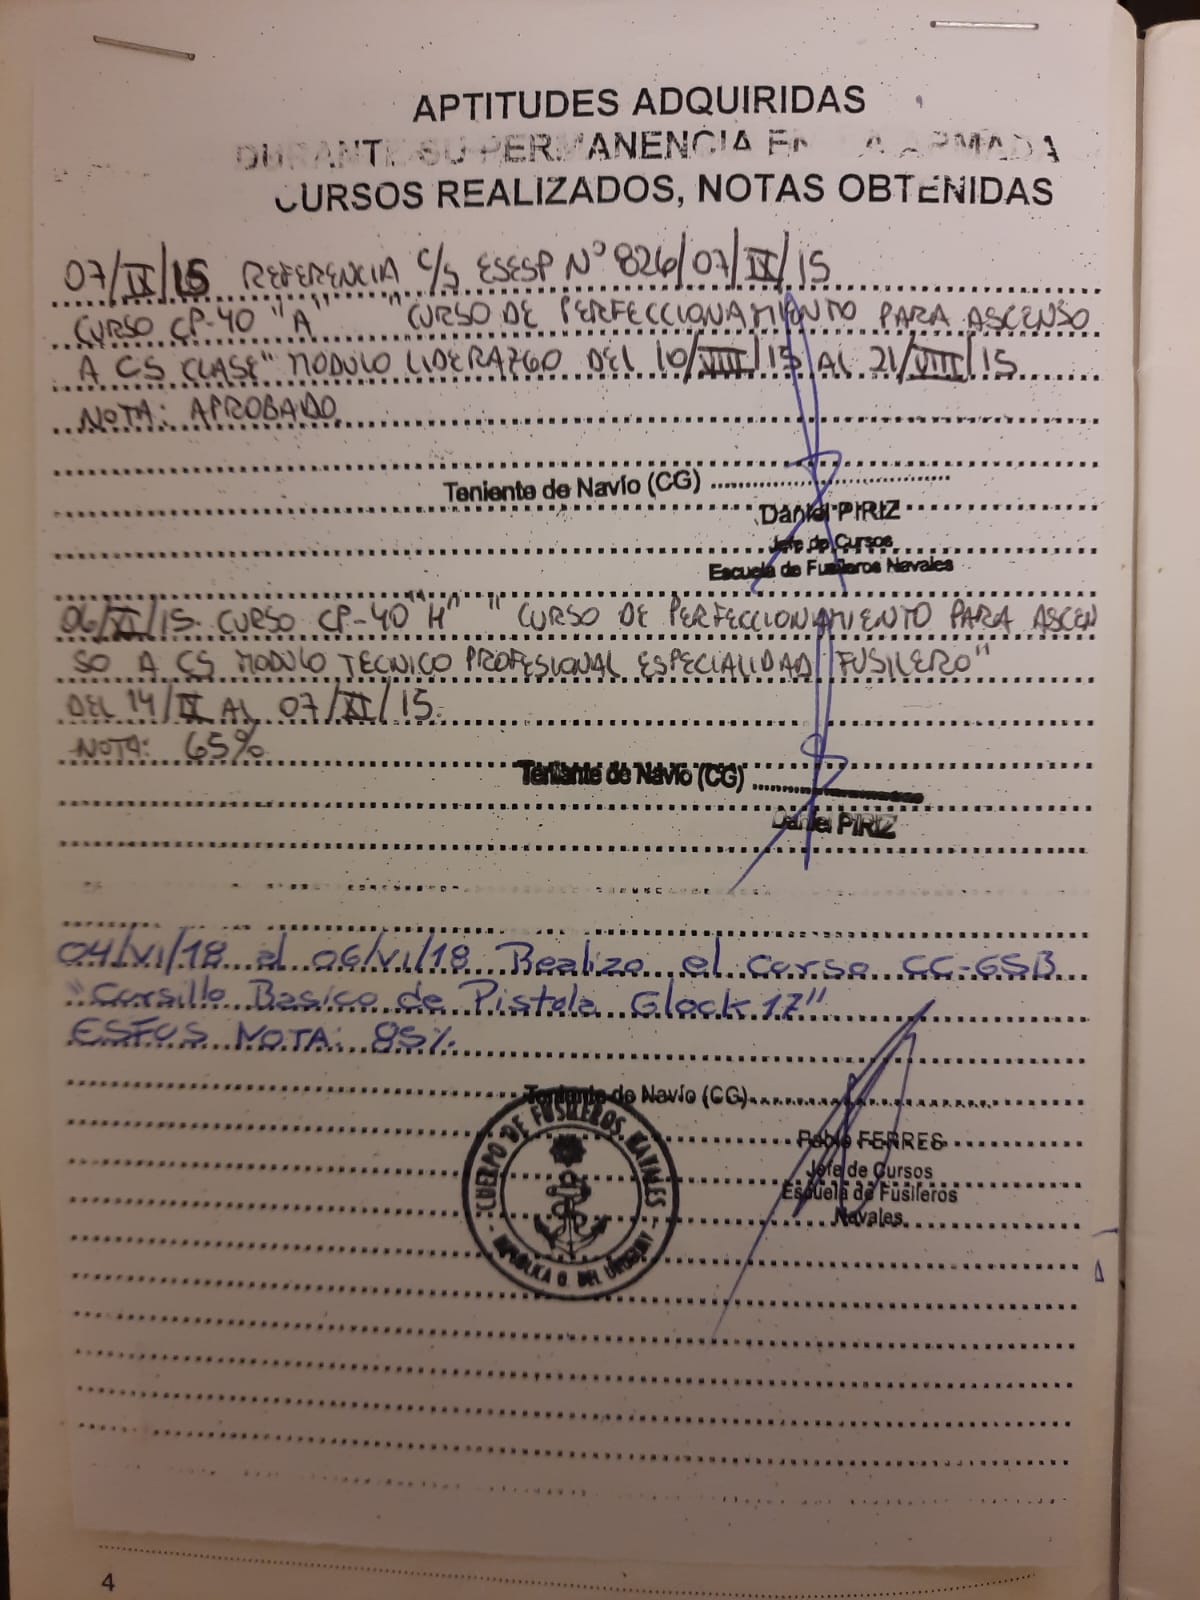 APTITUDES ADQUIRIDAS
DURANTE SU PERMANENCIA EN LA ARMADA
CURSOS REALIZADOS, NOTAS OBTENIDAS
07/IX/15 REFERENCIA C/S ESESP Nº 826/07/IX/15
CURSO CP-40 "A" "CURSO DE PERFECCIONAMIENTO PARA ASCENSO
A CS CLASE" MODULO LIDERAZGO DEL 10/VIII/15 AL 21/VIII/15
NOTA: APROBADO
Teniente de Navío (CG)
Daniel PIRIZ
Jefe de Cursos
Escuela de Fusileros Navales
06/XI/15. CURSO CP-40 "H" " CURSO DE PERFECCIONAMIENTO PARA ASCEN
SO A CS MODULO TECNICO PROFESIONAL ESPECIALIDAD FUSILERO"
DEL 14/IX AL 07/XI/15.
NOTA: 65%
Teniente de Navío (CG)
Daniel PIRIZ
04/VI/18 al 06/VI/18 Realizo el curso CC-65B
"Cursillo Basico de Pistola Glock 17"
ESFUS NOTA: 85%
Teniente de Navío (CG)
Pablo FERRES
Jefe de Cursos
Escuela de Fusileros
Navales
CUERPO DE FUSILEROS NAVALES
REPUBLICA O. DEL URUGUAY
4